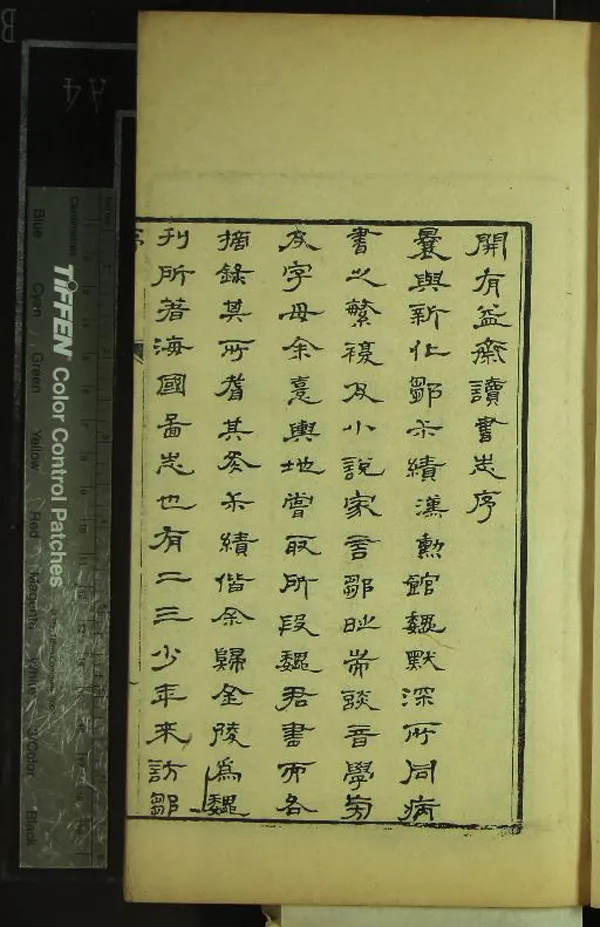 開有益齋讀書志序
曩與新化鄒尗績漢勳館魏默深所同病
書之繁複及小說家言鄒旹常談音學旁
及字母余憙輿地嘗取所段魏君書而各
摘錄其所耆其冬尗績偕余歸金陵為魏
刊所著海國圖志也有二三少年來訪鄒
TIFFEN Color Control Patches
Blue Cyan Green Yellow Red Magenta White 3/Color Black
Centimetres
A4